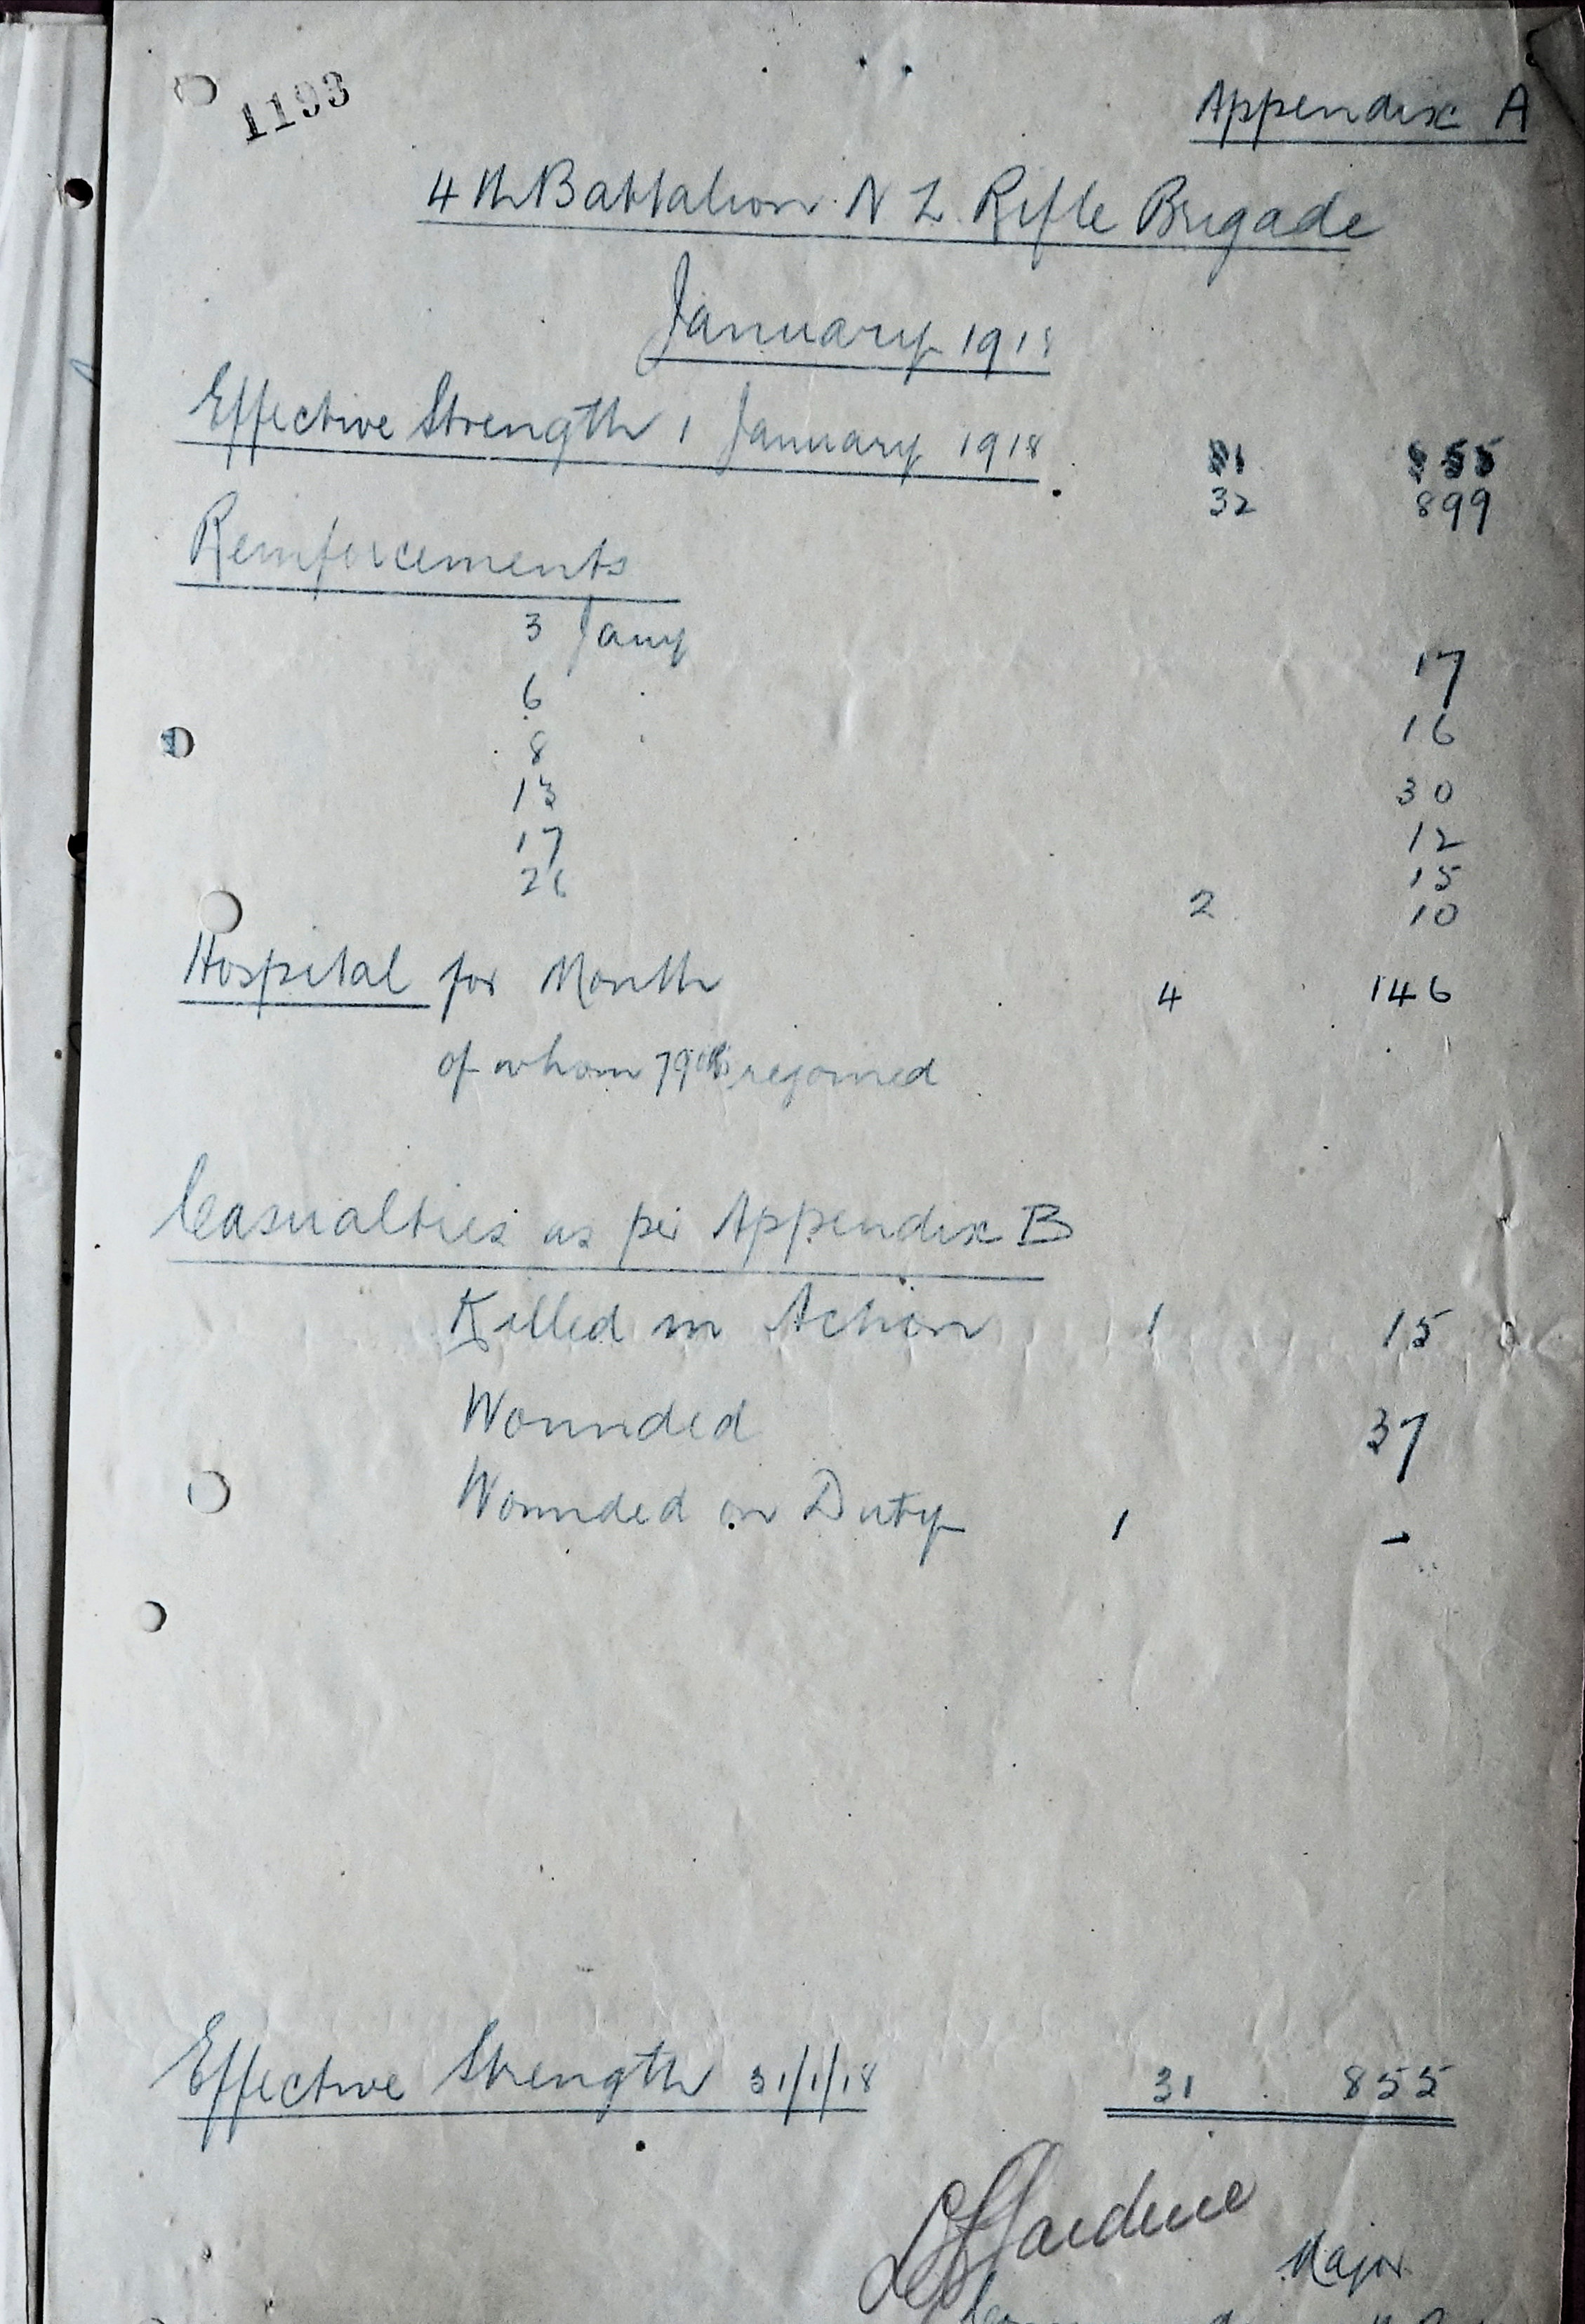 1193
Appendix A
4th Battalion N Z Rifle Brigade
January 1918
Effective Strength 1 January 1918
32 899
Reinforcements
3 Jany 17
6 16
8 30
13 12
17 15
26 2 10
Hospital for Month 4 146
of whom 79 rejoined
Casualties as per Appendix B
Killed in Action 1 15
Wounded 37
Wounded on Duty 1 -
Effective Strength 31/1/18 31 855
Jardine
Major